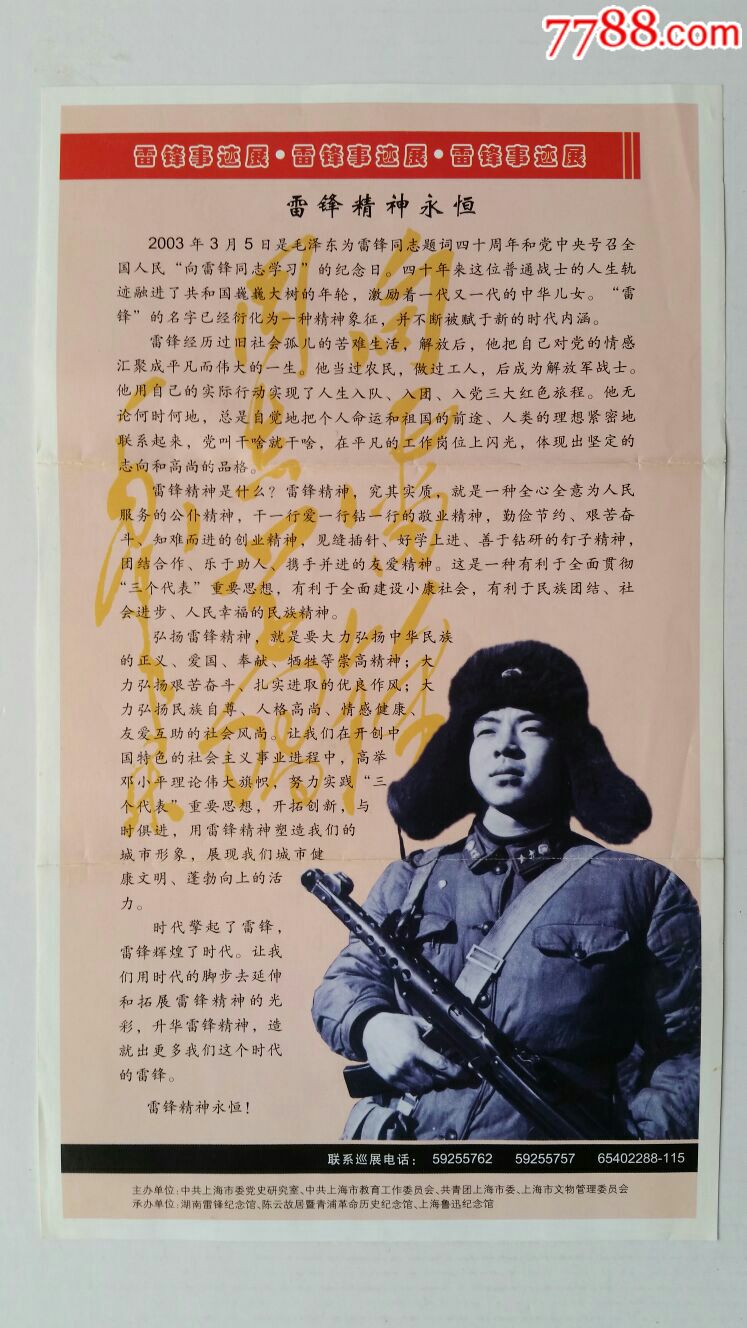 7788.com
雷锋事迹展·雷锋事迹展·雷锋事迹展
雷锋精神永恒
2003年3月5日是毛泽东为雷锋同志题词四十周年和党中央号召全
国人民“向雷锋同志学习”的纪念日。四十年来这位普通战士的人生轨
迹融进了共和国巍巍大树的年轮，激励着一代又一代的中华儿女。“雷
锋”的名字已经衍化为一种精神象征，并不断被赋于新的时代内涵。
雷锋经历过旧社会孤儿的苦难生活，解放后，他把自己对党的情感
汇聚成平凡而伟大的一生。他当过农民，做过工人，后成为解放军战士。
他用自己的实际行动实现了人生入队、入团、入党三大红色旅程。他无
论何时何地，总是自觉地把个人命运和祖国的前途、人类的理想紧密地
联系起来，党叫干啥就干啥，在平凡的工作岗位上闪光，体现出坚定的
志向和高尚的品格。
雷锋精神是什么？雷锋精神，究其实质，就是一种全心全意为人民
服务的公仆精神，干一行爱一行钻一行的敬业精神，勤俭节约、艰苦奋
斗、知难而进的创业精神，见缝插针、好学上进、善于钻研的钉子精神，
团结合作、乐于助人、携手并进的友爱精神。这是一种有利于全面贯彻
“三个代表”重要思想，有利于全面建设小康社会，有利于民族团结、社
会进步、人民幸福的民族精神。
弘扬雷锋精神，就是要大力弘扬中华民族
的正义、爱国、奉献、牺牲等崇高精神；大
力弘扬艰苦奋斗、扎实进取的优良作风；大
力弘扬民族自尊、人格高尚、情感健康、
友爱互助的社会风尚。让我们在开创中
国特色的社会主义事业进程中，高举
邓小平理论伟大旗帜，努力实践“三
个代表”重要思想，开拓创新，与
时俱进，用雷锋精神塑造我们的
城市形象，展现我们城市健
康文明、蓬勃向上的活
力。
时代擎起了雷锋，
雷锋辉煌了时代。让我
们用时代的脚步去延伸
和拓展雷锋精神的光
彩，升华雷锋精神，造
就出更多我们这个时代
的雷锋。
雷锋精神永恒！
联系巡展电话： 59255762 59255757 65402288-115
主办单位：中共上海市委党史研究室、中共上海市教育工作委员会、共青团上海市委、上海市文物管理委员会
承办单位：湖南雷锋纪念馆、陈云故居暨青浦革命历史纪念馆、上海鲁迅纪念馆
向雷锋
同志学习
毛泽东